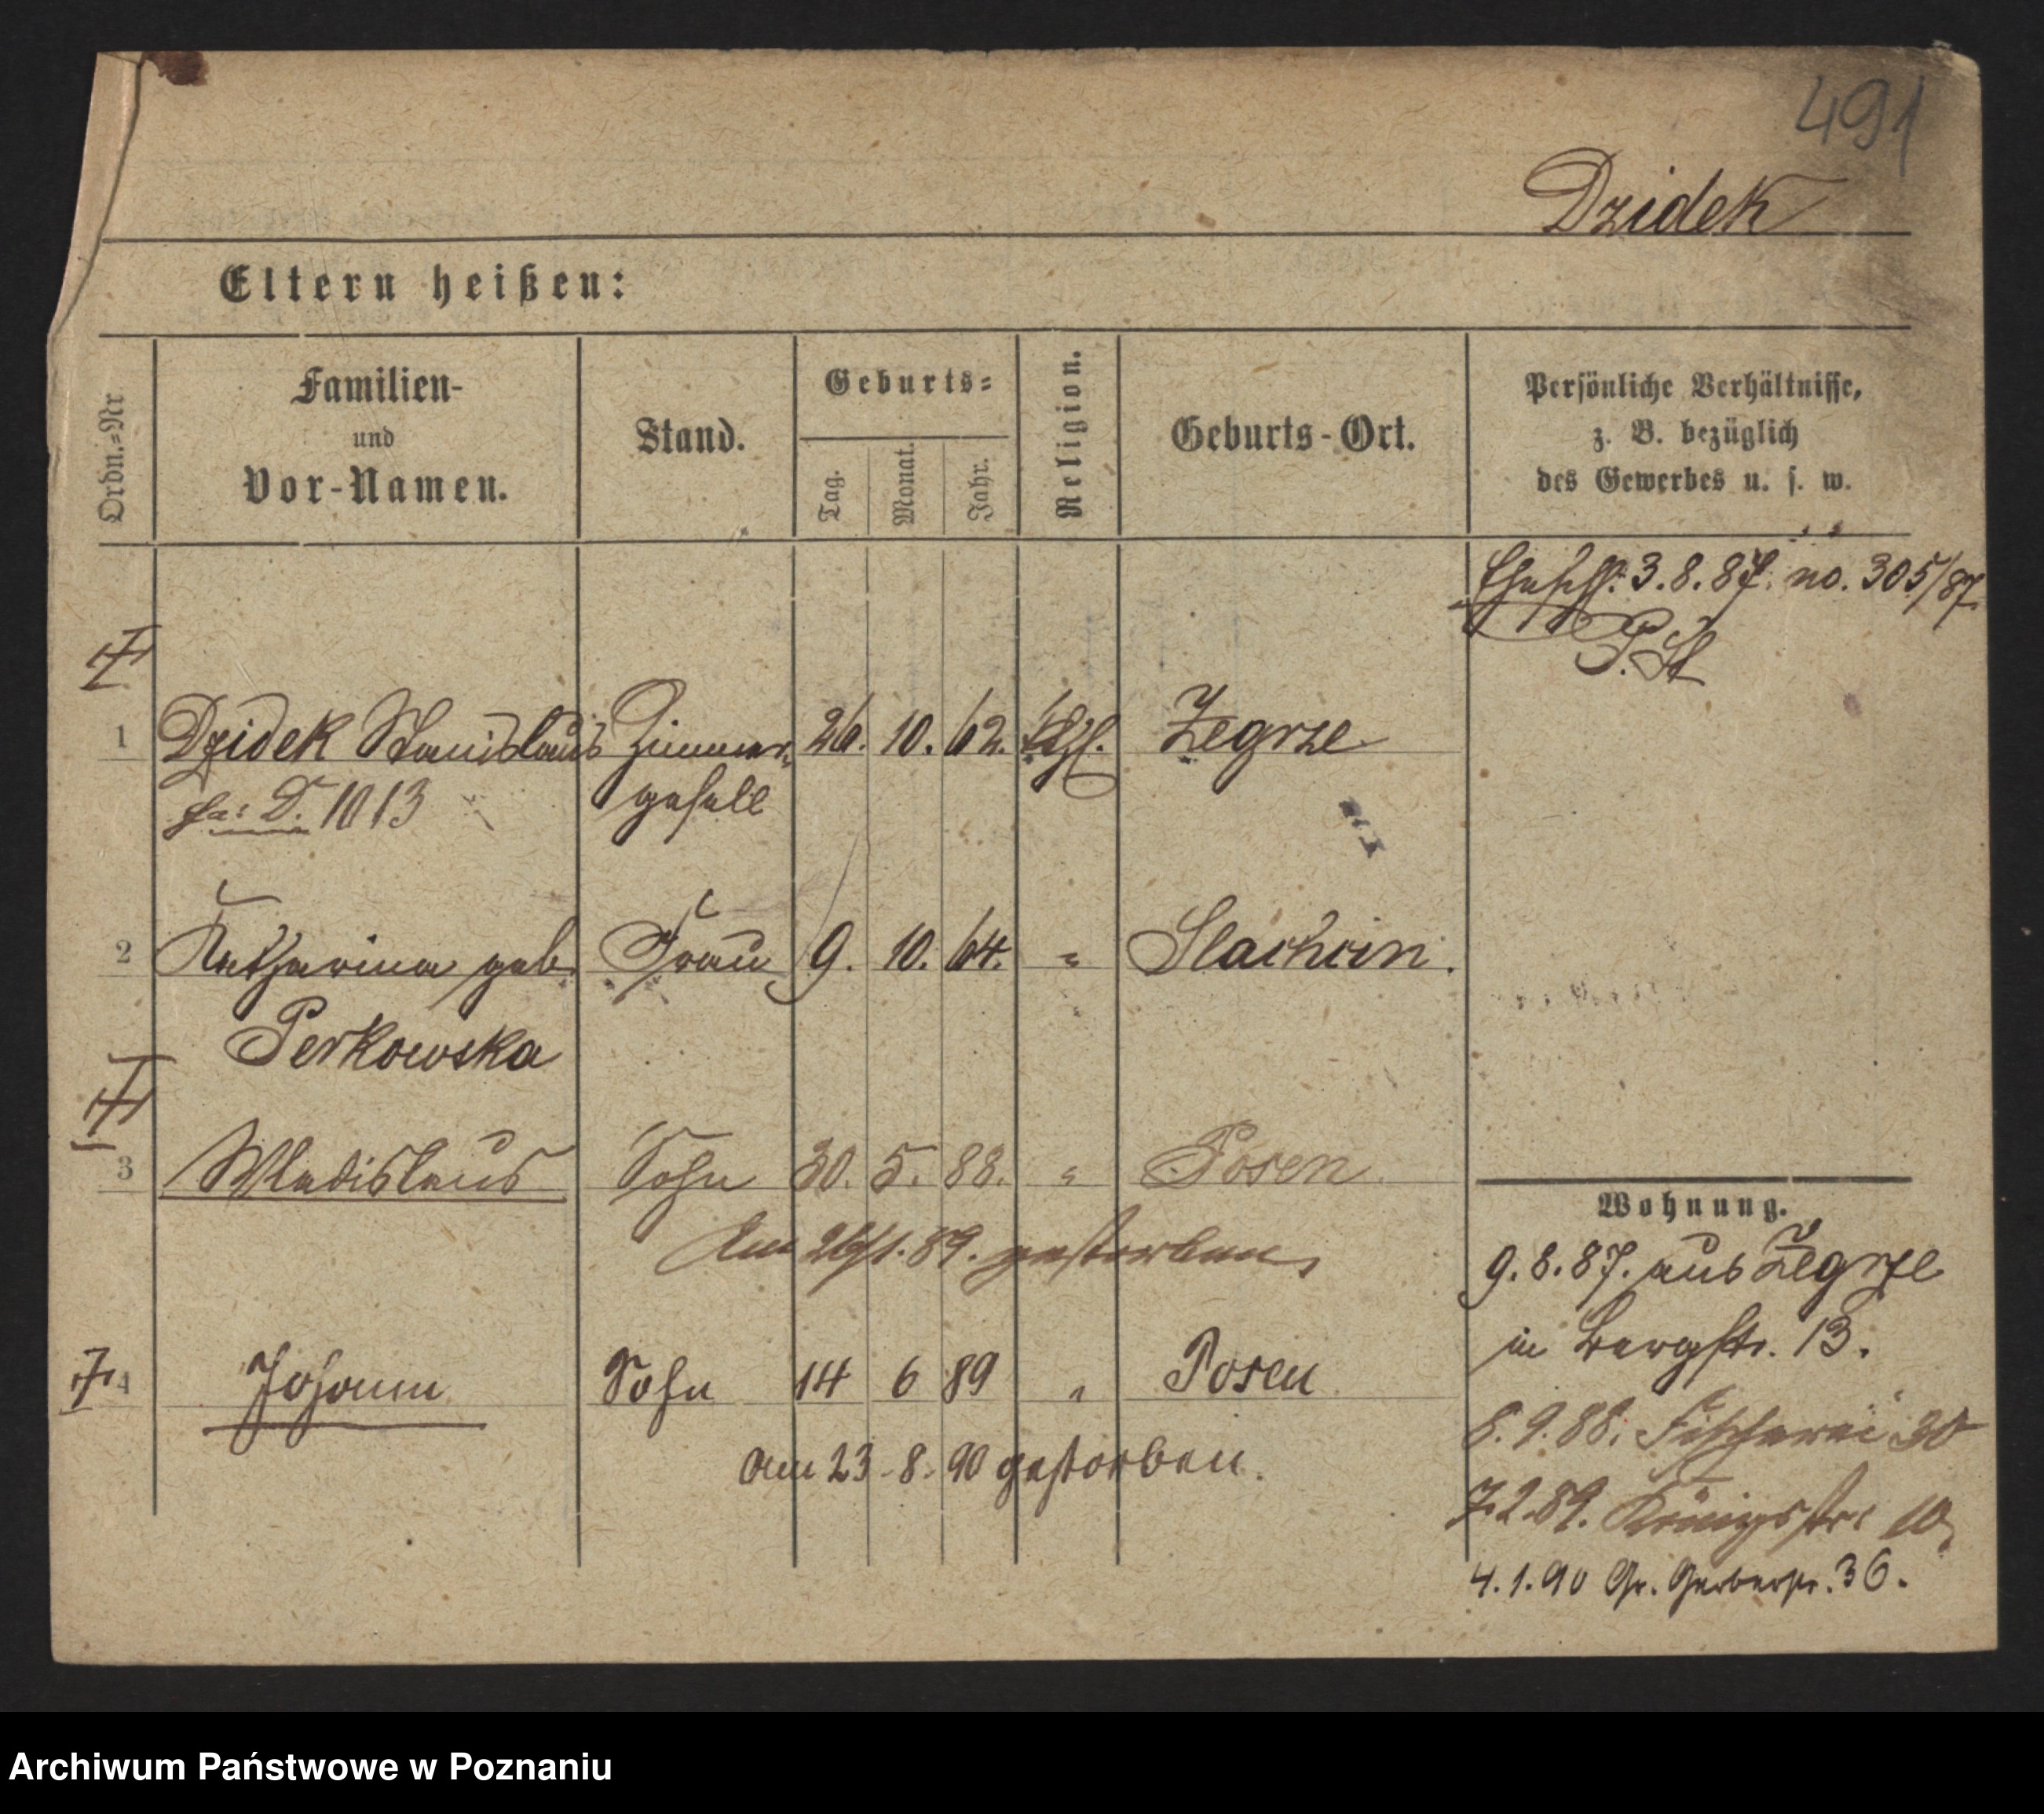 491
Dzidek
Eltern heißen:
Ordn.=Nr
Familien-
und
Vor-Namen.
Stand.
Geburts=
Tag.
Monat.
Jahr.
Religion.
Geburts-Ort.
Persönliche Verhältnisse,
z. B. bezüglich
des Gewerbes u. s. w.
3.8.87. no. 305/87.
P. St
1 Dzidek Stanislaus Zimmer- 26. 10. 62. Zegrze
D. 1013 gesell
2 Katharina geb. Frau 9. 10. 64. " Slachcin.
Perkowska
3 Wladislaus Sohn 30. 5. 88. " Posen
Am 26/1. 89. gestorben
4 Johann Sohn 14 6 89 " Posen
am 23. 8. 90 gestorben.
Wohnung.
9.8.87. aus Zegrze
in Bergstr. 13.
8.9.88. Fischerei 30
7.2.89. Königsstr. 10
4.1.90 Gr. Gerberstr. 36.
Archiwum Państwowe w Poznaniu